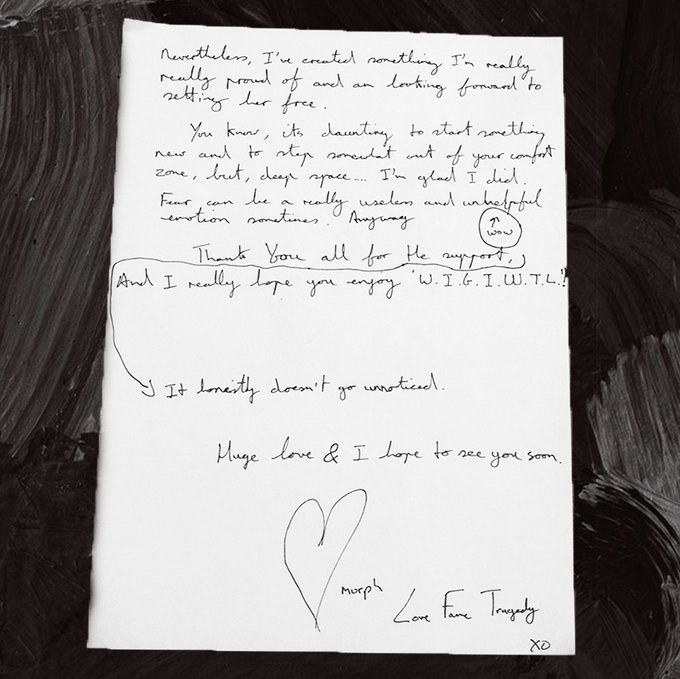 Nevertheless, I've created something I'm really
really proud of and am looking forward to
setting her free.
You know, its daunting to start something
new and to step somewhat out of your comfort
zone, but, deep space... I'm glad I did.
Fear, can be a really useless and unhelpful
emotion sometimes. Anyway
wow
Thank You all for the support,
And I really hope you enjoy 'W.I.G.I.W.T.L.'!
It honestly doesn't go unnoticed.
Huge love & I hope to see you soon.
murph
Love Fame Tragedy
XO